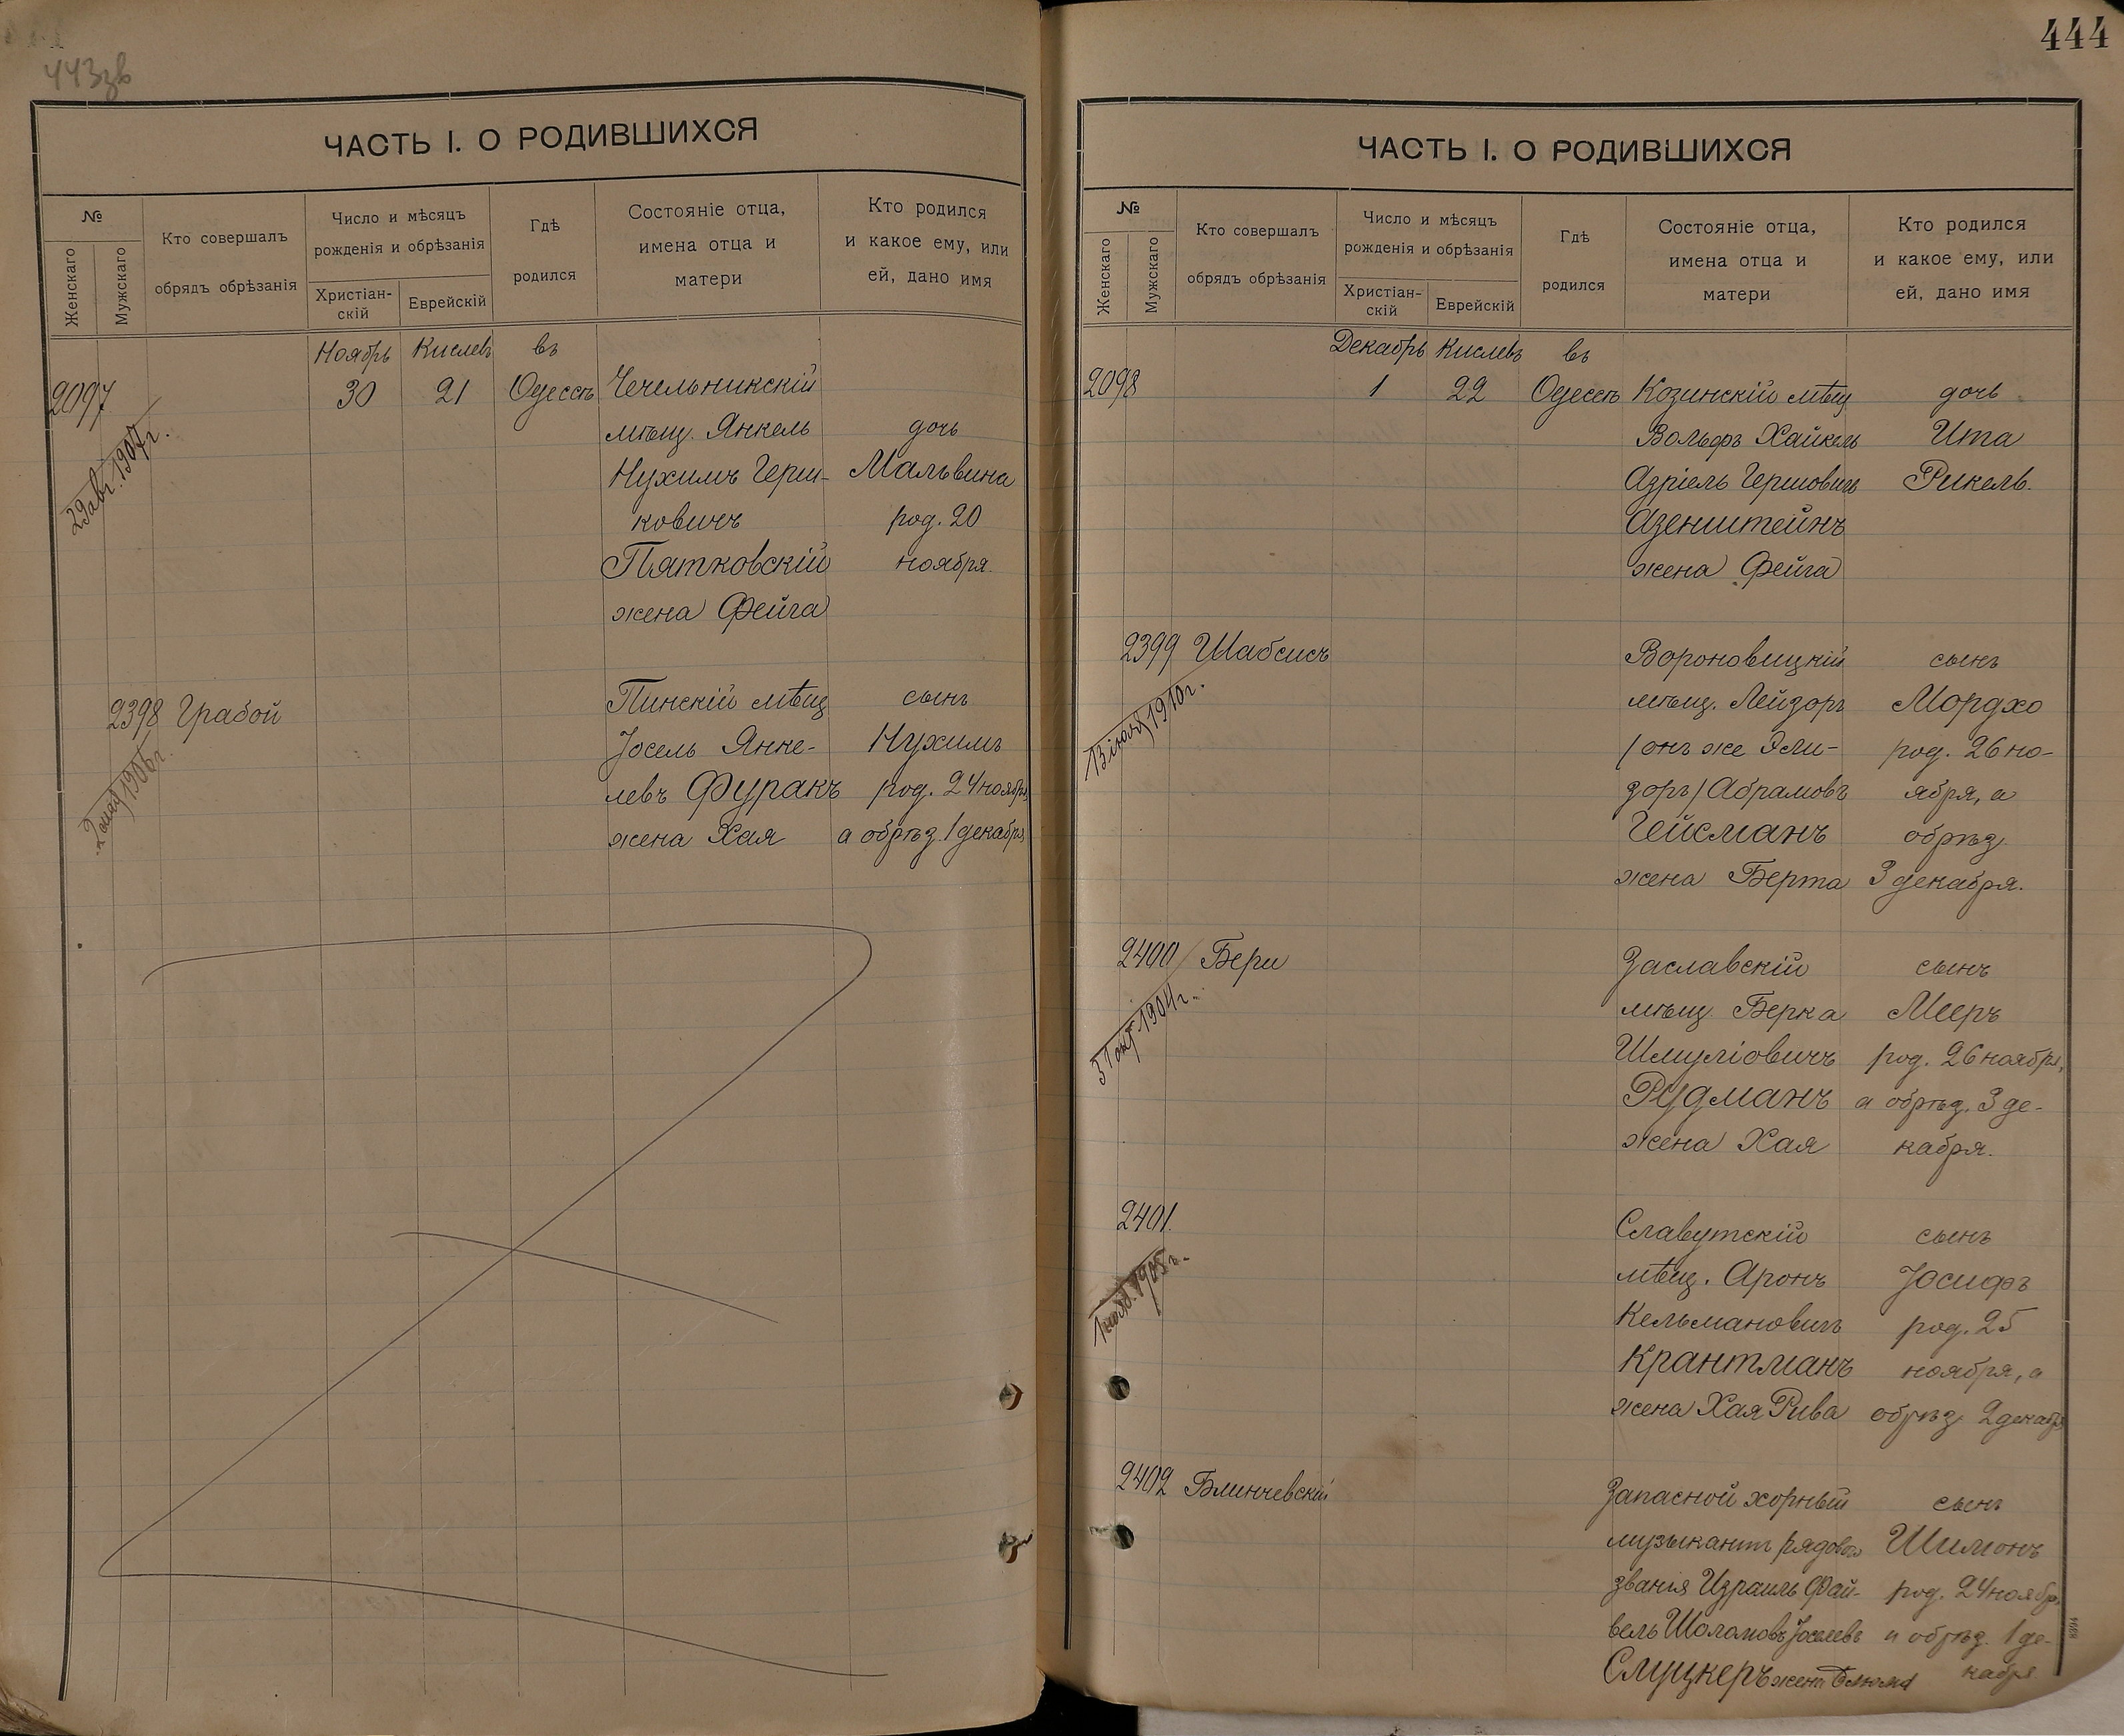 443зв
ЧАСТЬ I. О РОДИВШИХСЯ
№
Женскаго
Мужскаго
Кто совершалъ
обрядъ обрѣзанія
Число и мѣсяцъ
рожденія и обрѣзанія
Христіан-
скій
Еврейскій
Гдѣ
родился
Состояніе отца,
имена отца и
матери
Кто родился
и какое ему, или
ей, дано имя
Ноябрь Кислевъ въ
2097 30 21 Одессѣ Чечельникскій
29 авг. 1907 г.
мѣщ. Янкель дочь
Нухимъ Герш- Мальвина
ковичъ род. 20
Пятковскій ноября.
жена Фейга
2398 Грабой Пинскій мѣщ сынъ
1906 г.
Іосель Янке- Нухимъ
левъ Фуракъ род. 24 ноября,
жена Хая а обрѣз. 1 декабря
444
ЧАСТЬ I. О РОДИВШИХСЯ
№
Женскаго
Мужскаго
Кто совершалъ
обрядъ обрѣзанія
Число и мѣсяцъ
рожденія и обрѣзанія
Христіан-
скій
Еврейскій
Гдѣ
родился
Состояніе отца,
имена отца и
матери
Кто родился
и какое ему, или
ей, дано имя
Декабрь Кислевъ въ
2098 1 22 Одессѣ Козинскій мѣщ дочь
Вольфъ Хайкель Ита
Азріель Гершовичъ Рикель.
Азенштейнъ
жена Фейга
2399 Шабсисъ Вороновицкій сынъ
1910 г.
мѣщ. Лейзоръ Мордхо
/онъ же Эли- род. 26 но-
зоръ/ Абрамовъ ября, а
Гейсманъ обрѣз.
жена Берта 3 декабря.
2400 Бери Заславскій сынъ
1904 г.
мѣщ. Берка Мееръ
Шмуліовичъ род. 26 ноября,
Рудманъ а обрѣз. 3 де-
жена Хая кабря.
2401. Славутскій сынъ
1905 г.
мѣщ. Аронъ Іосифъ
Кельмановичъ род. 25
Крантманъ ноября, а
жена Хая Рива обрѣз 2 декабря
2402 Блинчевскій Запасной хорный сынъ
музыкантъ рядового Шимонъ
званія Израиль Фай- род. 24 ноября,
вель Шоломовъ Іоселевъ и обрѣз. 1 де-
Слуцкеръ жена Блюма кабря